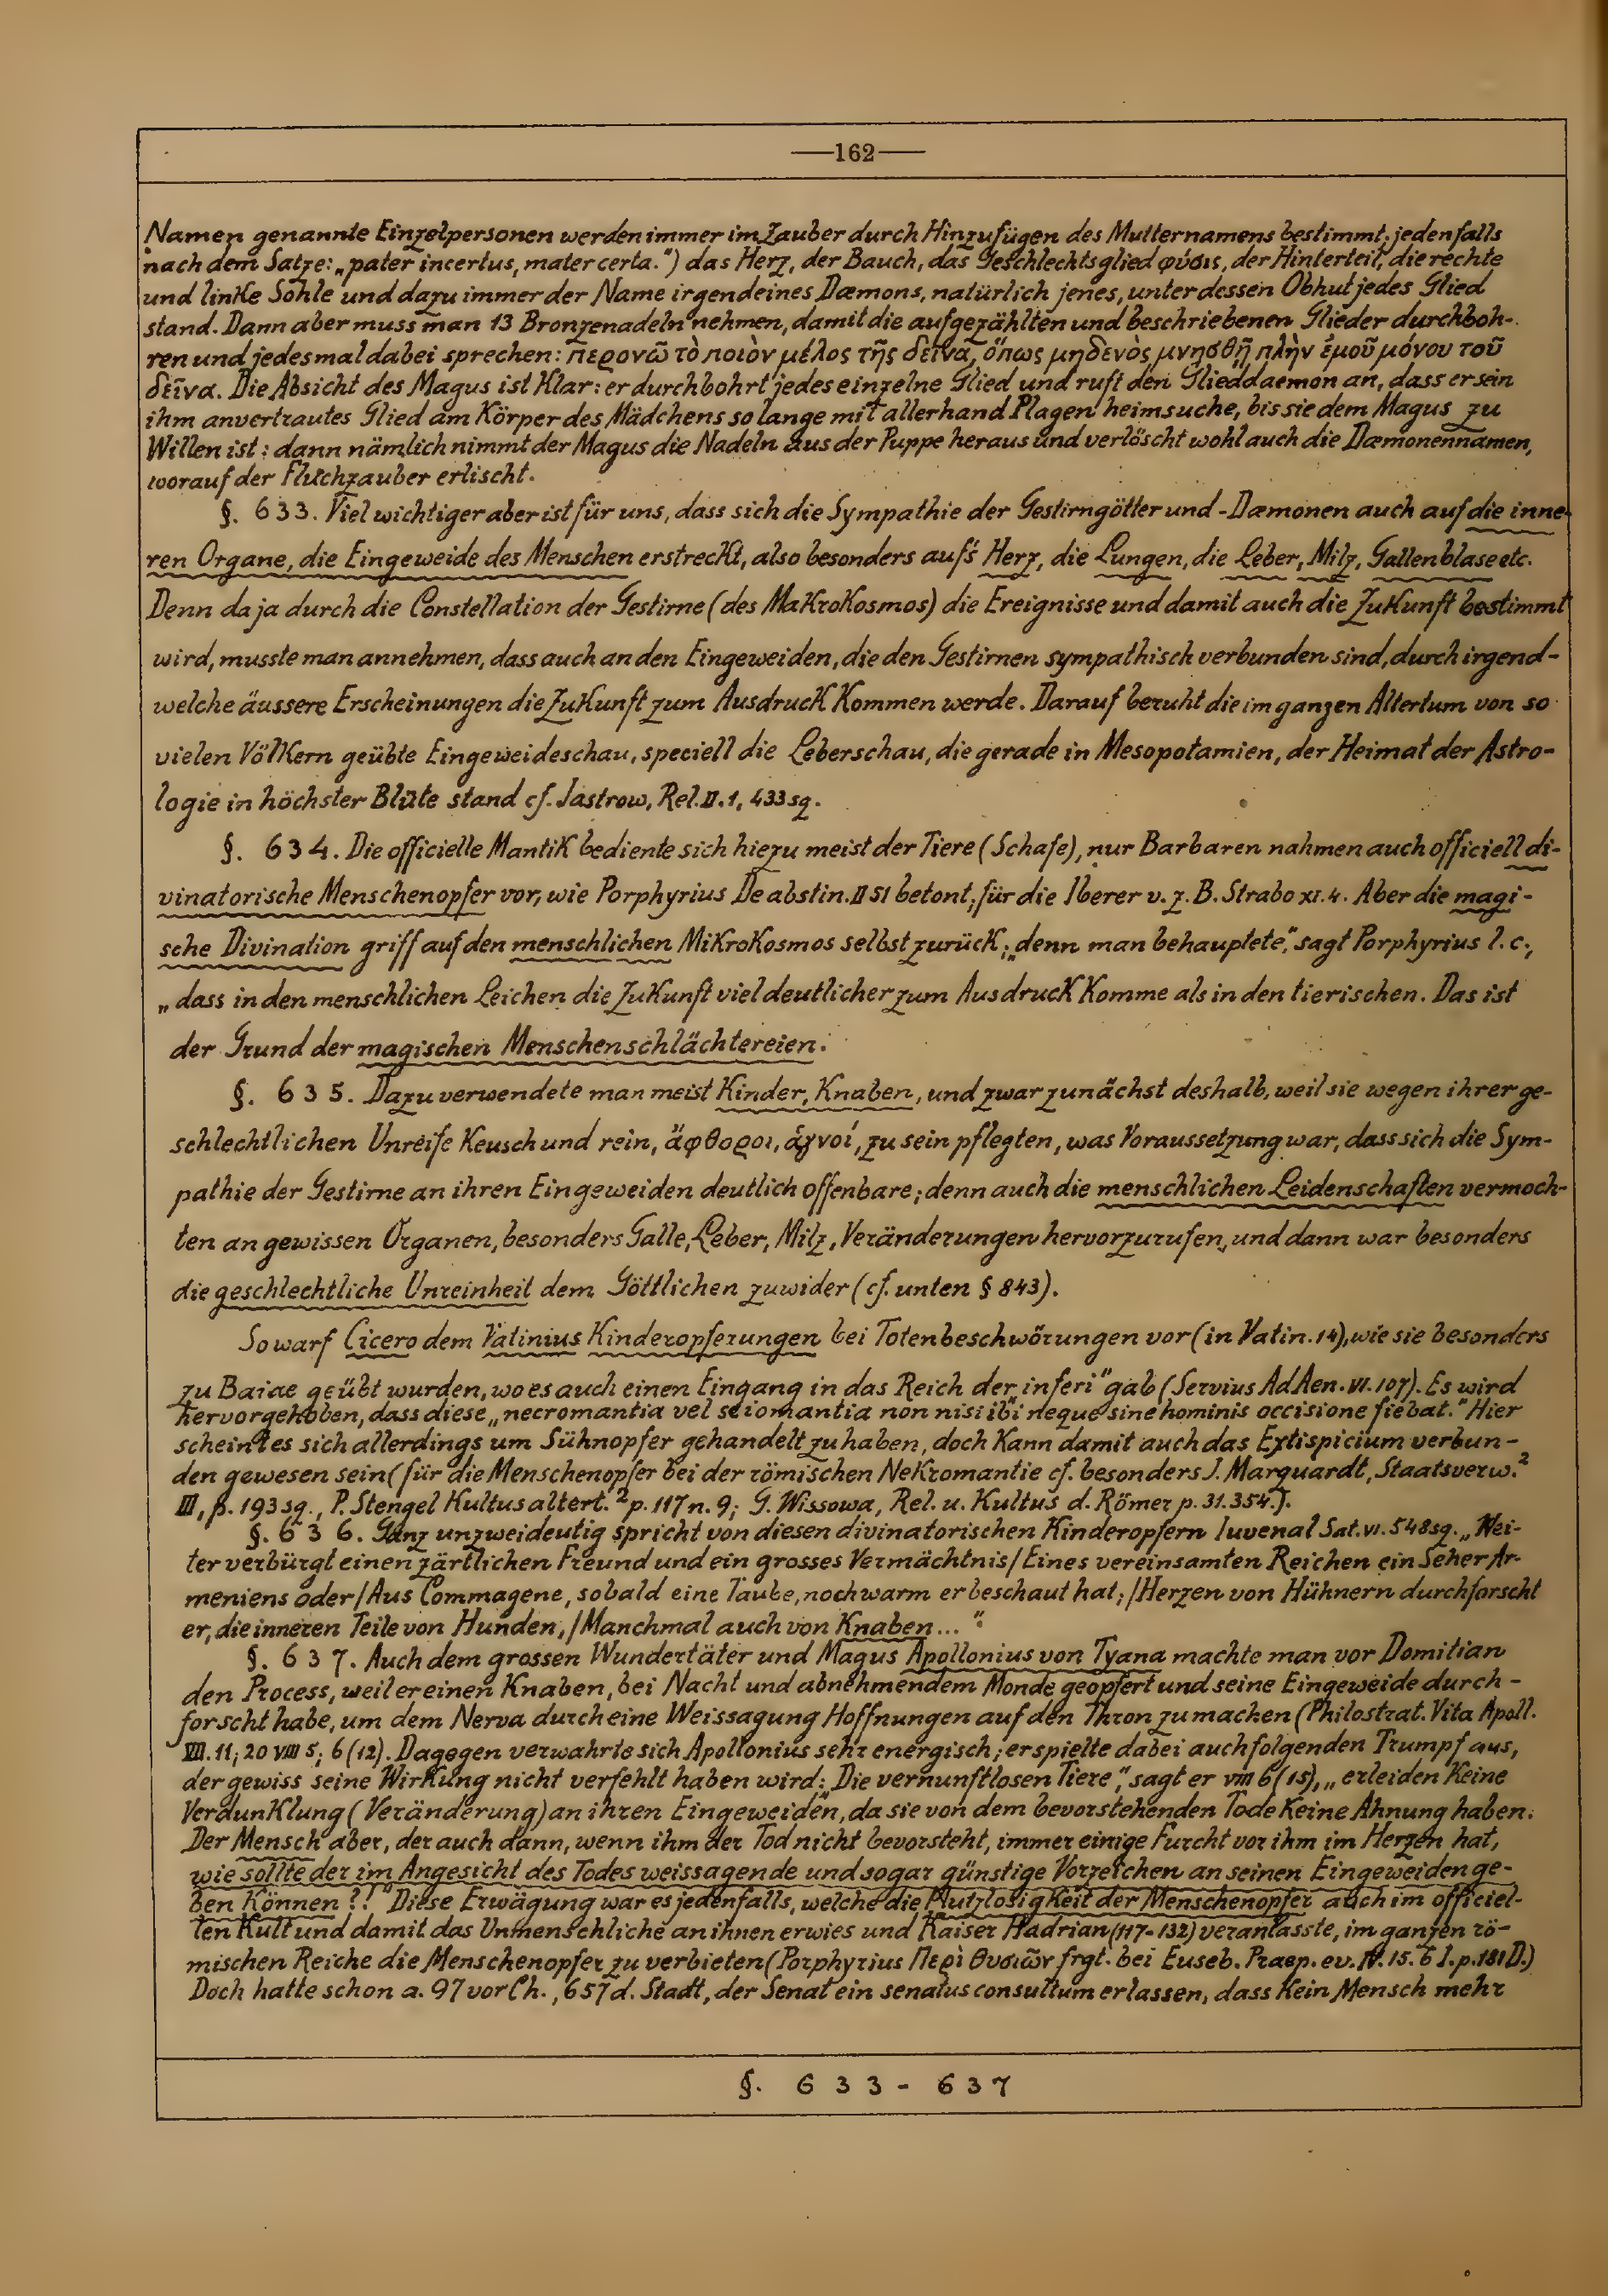 —162—
Namen genannte Einzelpersonen werden immer im Zauber durch Hinzufügen des Mutternamens bestimmt, jedenfalls
nach dem Satze: „pater incertus, mater certa.") das Herz, der Bauch, das Geschlechtsglied φύσις, der Hinterteil, die rechte
und linke Sohle und dazu immer der Name irgendeines Dæmons, natürlich jenes, unter dessen Obhut jedes Glied
stand. Dann aber muss man 13 Bronzenadeln nehmen, damit die aufgezählten und beschriebenen Glieder durchboh-
ren und jedesmal dabei sprechen: περονῶ τὸ ποιὸν μέλος τῆς δεῖνα, ὅπως μηδενὸς μνησθῇ πλὴν ἐμοῦ μόνου τοῦ
δεῖνα. Die Absicht des Magus ist klar: er durchbohrt jedes einzelne Glied und ruft den Glieddaemon an, dass er sein
ihm anvertrautes Glied am Körper des Mädchens so lange mit allerhand Plagen heimsuche, bis sie dem Magus zu
Willen ist: dann nämlich nimmt der Magus die Nadeln aus der Puppe heraus und verlöscht wohl auch die Dæmonennamen,
worauf der Fluchzauber erlischt.
§. 633. Viel wichtiger aber ist für uns, dass sich die Sympathie der Gestirngötter und -Dæmonen auch auf die inne-
ren Organe, die Eingeweide des Menschen erstreckt, also besonders auf's Herz, die Lungen, die Leber, Milz, Gallenblase etc.
Denn da ja durch die Constellation der Gestirne (des Makrokosmos) die Ereignisse und damit auch die Zukunft bestimmt
wird, musste man annehmen, dass auch an den Eingeweiden, die den Gestirnen sympathisch verbunden sind, durch irgend-
welche äussere Erscheinungen die Zukunft zum Ausdruck kommen werde. Darauf beruht die im ganzen Altertum von so
vielen Völkern geübte Eingeweideschau, speciell die Leberschau, die gerade in Mesopotamien, der Heimat der Astro-
logie in höchster Blüte stand cf. Jastrow, Rel. II. 1, 433 sq.
§. 634. Die officielle Mantik bediente sich hiezu meist der Tiere (Schafe), nur Barbaren nahmen auch officiell di-
vinatorische Menschenopfer vor, wie Porphyrius De abstin. II 51 betont, für die Iberer v. z. B. Strabo XI. 4. Aber die magi-
sche Divination griff auf den menschlichen Mikrokosmos selbst zurück; „denn man behauptete," sagt Porphyrius l. c.,
„dass in den menschlichen Leichen die Zukunft viel deutlicher zum Ausdruck komme als in den tierischen. Das ist
der Grund der magischen Menschenschlächtereien.
§. 635. Dazu verwendete man meist Kinder, Knaben, und zwar zunächst deshalb, weil sie wegen ihrer ge-
schlechtlichen Unreife keusch und rein, ἄφθοροι, ἁγνοί, zu sein pflegten, was Voraussetzung war, dass sich die Sym-
pathie der Gestirne an ihren Eingeweiden deutlich offenbare; denn auch die menschlichen Leidenschaften vermoch-
ten an gewissen Organen, besonders Galle, Leber, Milz, Veränderungen hervorzurufen, und dann war besonders
die geschlechtliche Unreinheit dem Göttlichen zuwider (cf. unten § 843).
So warf Cicero dem Vatinius Kinderopferungen bei Totenbeschwörungen vor (in Vatin. 14), wie sie besonders
zu Baiae geübt wurden, wo es auch einen Eingang in das Reich der „inferi" gab (Servius Ad Aen. VI. 107). Es wird
hervorgehoben, dass diese „necromantia vel sciomantia non nisi ibi neque sine hominis occisione fiebat." Hier
scheint es sich allerdings um Sühnopfer gehandelt zu haben, doch kann damit auch das Extispicium verbun-
den gewesen sein (für die Menschenopfer bei der römischen Nekromantie cf. besonders J. Marquardt, Staatsverw.²
III, p. 193 sq., P. Stengel Kultusaltert.² p. 117 n. 9; G. Wissowa, Rel. u. Kultus d. Römer p. 31. 354.).
§. 636. Ganz unzweideutig spricht von diesen divinatorischen Kinderopfern Iuvenal Sat. VI. 548 sq. „Wei-
ter verbürgt einen zärtlichen Freund und ein grosses Vermächtnis/Eines vereinsamten Reichen ein Seher Ar-
meniens oder/Aus Commagene, sobald eine Taube, noch warm er beschaut hat;/Herzen von Hühnern durchforscht
er, die inneren Teile von Hunden,/Manchmal auch von Knaben..."
§. 637. Auch dem grossen Wundertäter und Magus Apollonius von Tyana machte man vor Domitian
den Process, weil er einen Knaben, bei Nacht und abnehmendem Monde geopfert und seine Eingeweide durch-
forscht habe, um dem Nerva durch eine Weissagung Hoffnungen auf den Thron zu machen (Philostrat. Vita Apoll.
VII. 11; 20 VIII 5; 6 (12). Dagegen verwahrte sich Apollonius sehr energisch; er spielte dabei auch folgenden Trumpf aus,
der gewiss seine Wirkung nicht verfehlt haben wird: „Die vernunftlosen Tiere," sagt er VIII 6 (15), „erleiden keine
Verdunklung (Veränderung) an ihren Eingeweiden, da sie von dem bevorstehenden Tode keine Ahnung haben.
Der Mensch aber, der auch dann, wenn ihm der Tod nicht bevorsteht, immer einige Furcht vor ihm im Herzen hat,
wie sollte der im Angesicht des Todes weissagende und sogar günstige Vorzeichen an seinen Eingeweiden ge-
ben können?!" Diese Erwägung war es jedenfalls, welche die Nutzlosigkeit der Menschenopfer auch im officiel-
len Kult und damit das Unmenschliche an ihnen erwies und Kaiser Hadrian (117-132) veranlasste, im ganzen rö-
mischen Reiche die Menschenopfer zu verbieten (Porphyrius Περὶ θυσιῶν frgt. bei Euseb. Praep. ev. IV. 15. 6 I. p. 181 D.)
Doch hatte schon a. 97 vor Ch., 657 d. Stadt, der Senat ein senatus consultum erlassen, dass kein Mensch mehr
§. 633 - 637